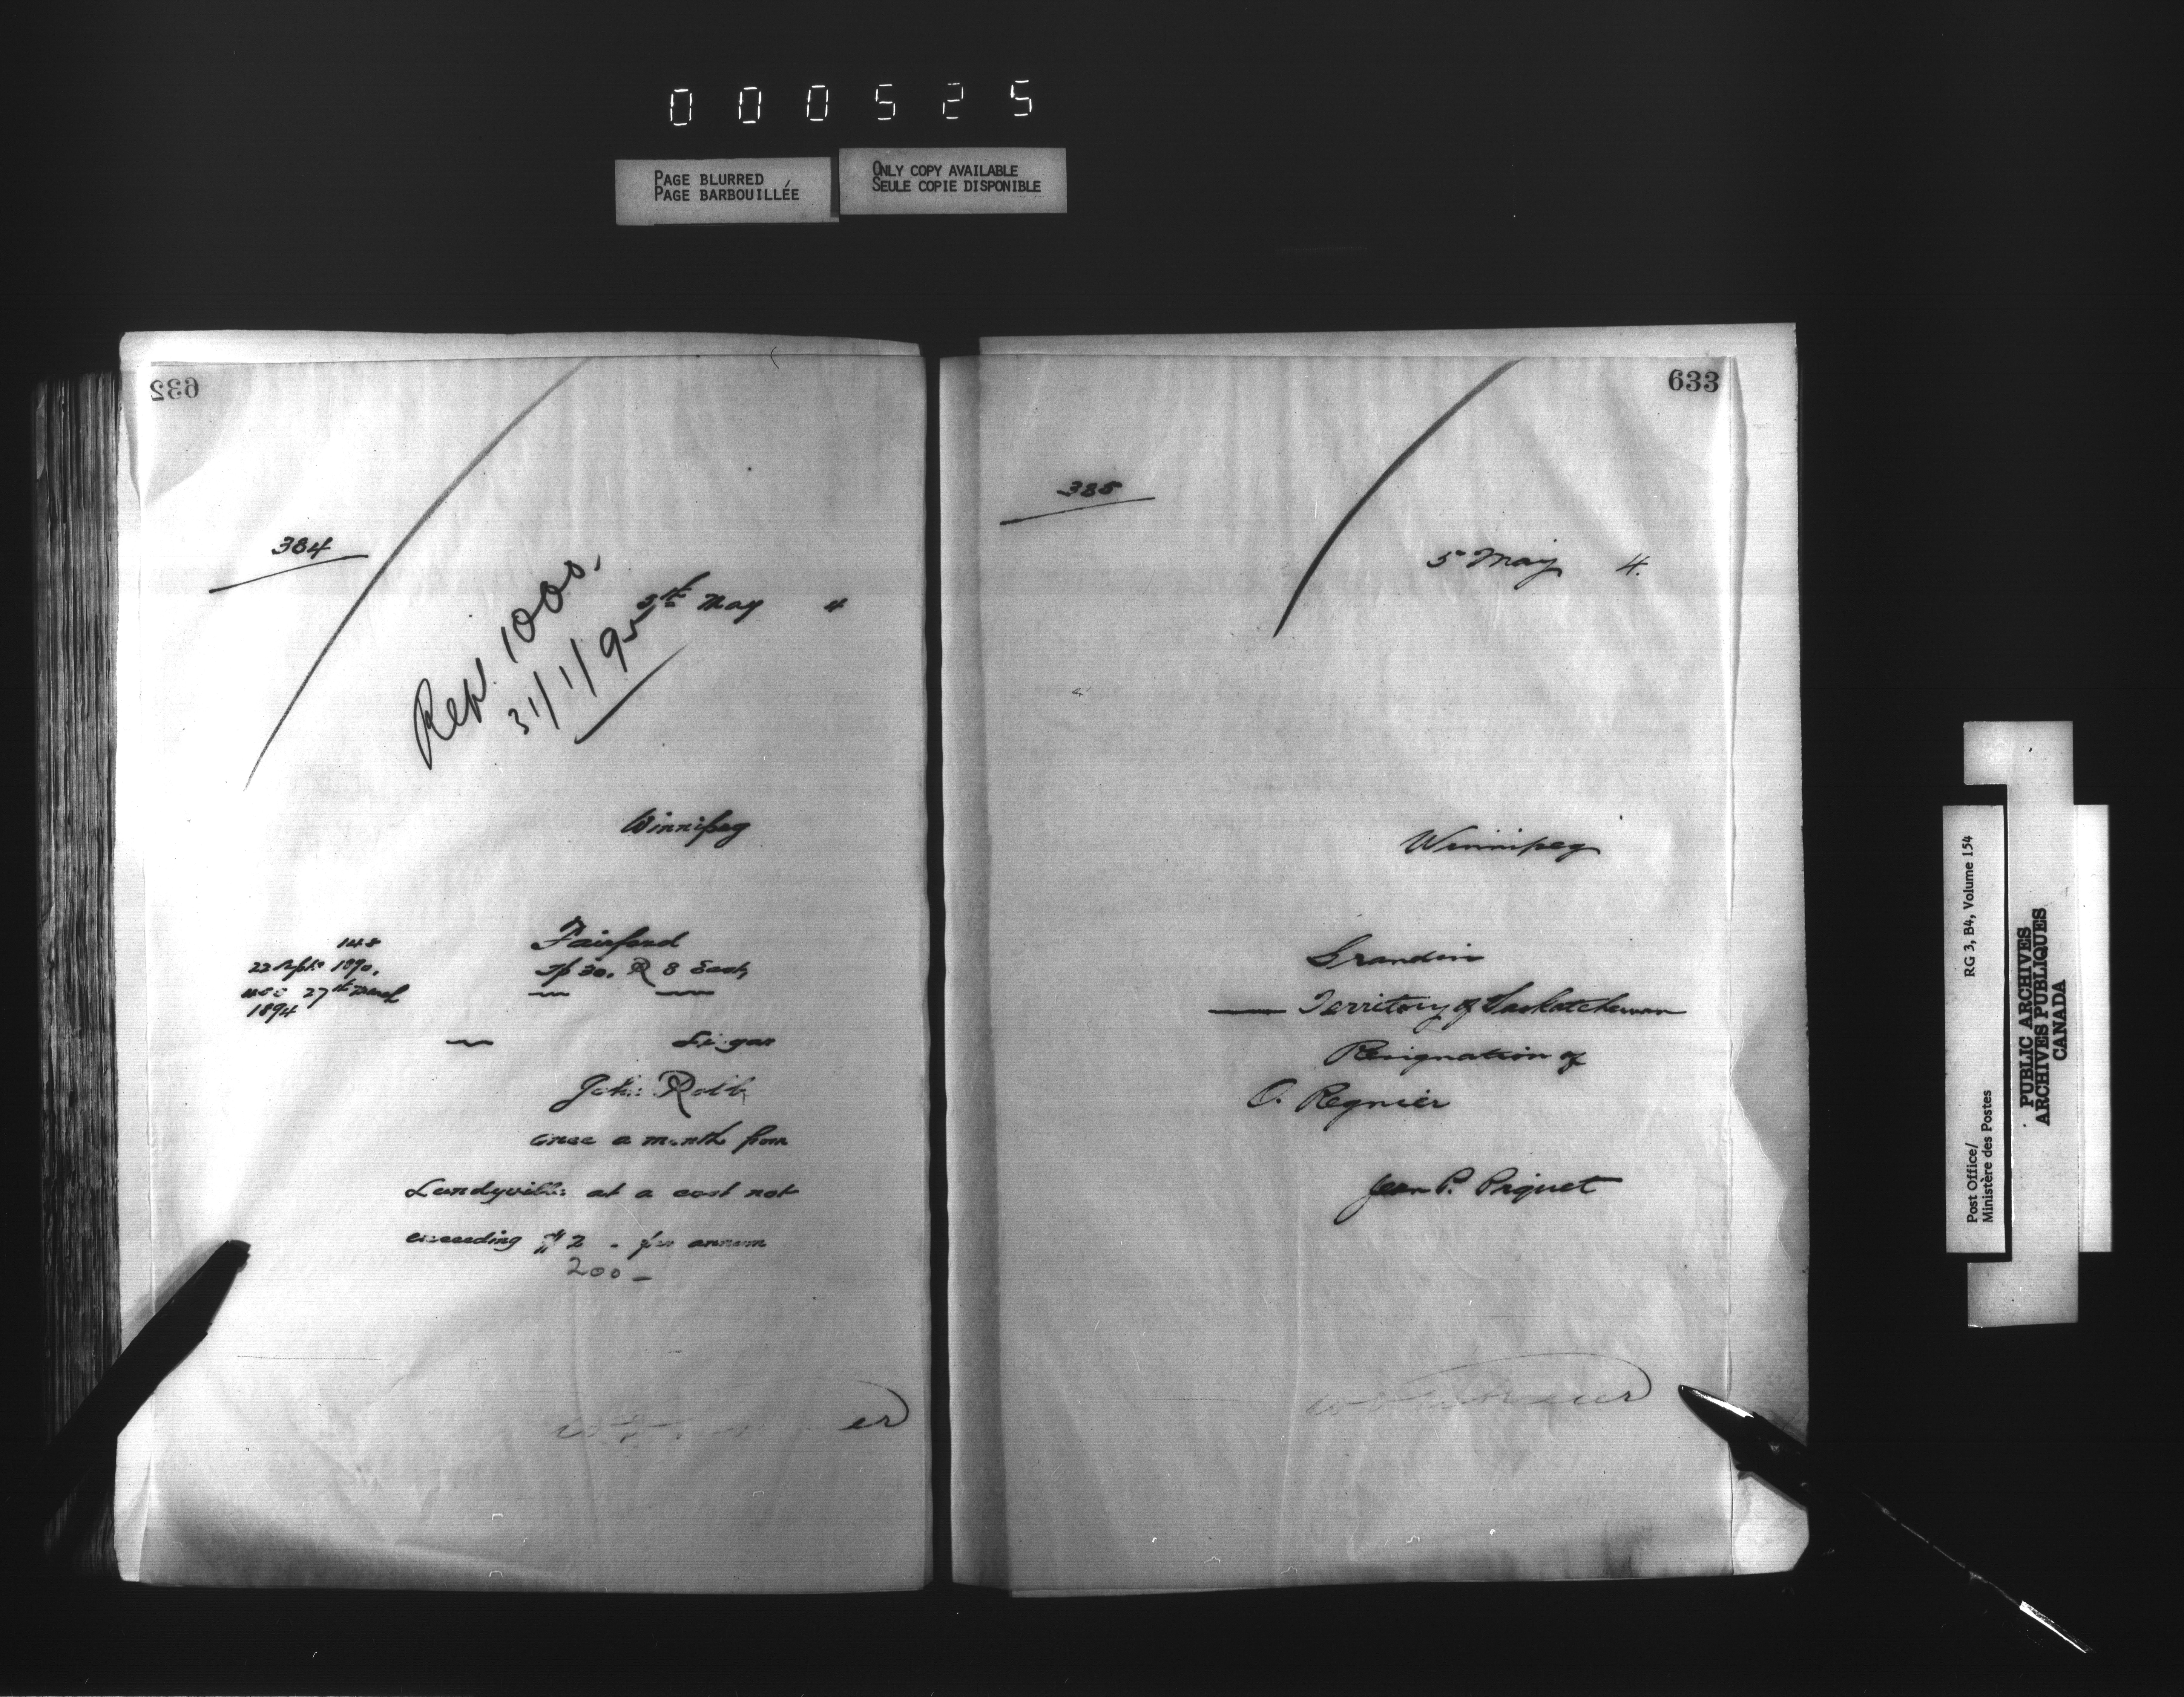 000525
PAGE BLURRED
PAGE BARBOUILLÉE
ONLY COPY AVAILABLE
SEULE COPIE DISPONIBLE
632
384
5th May 4
Rep. 1000.
31/1/95
Winnipeg
148
22 Septr 1890.
27th March
1894
Fairford
Tp 30. R 8 East
Lisgar
John Robb
once a month from
Lundyville at a cost not
exceeding $2 - per annum
200 -
633
385
5 May 4.
Winnipeg
Grandin
Territory of Saskatchewan
Resignation of
O. Regnier
Jean P. Piquet
RG 3, B4, Volume 154
Post Office/
Ministère des Postes
PUBLIC ARCHIVES
ARCHIVES PUBLIQUES
CANADA